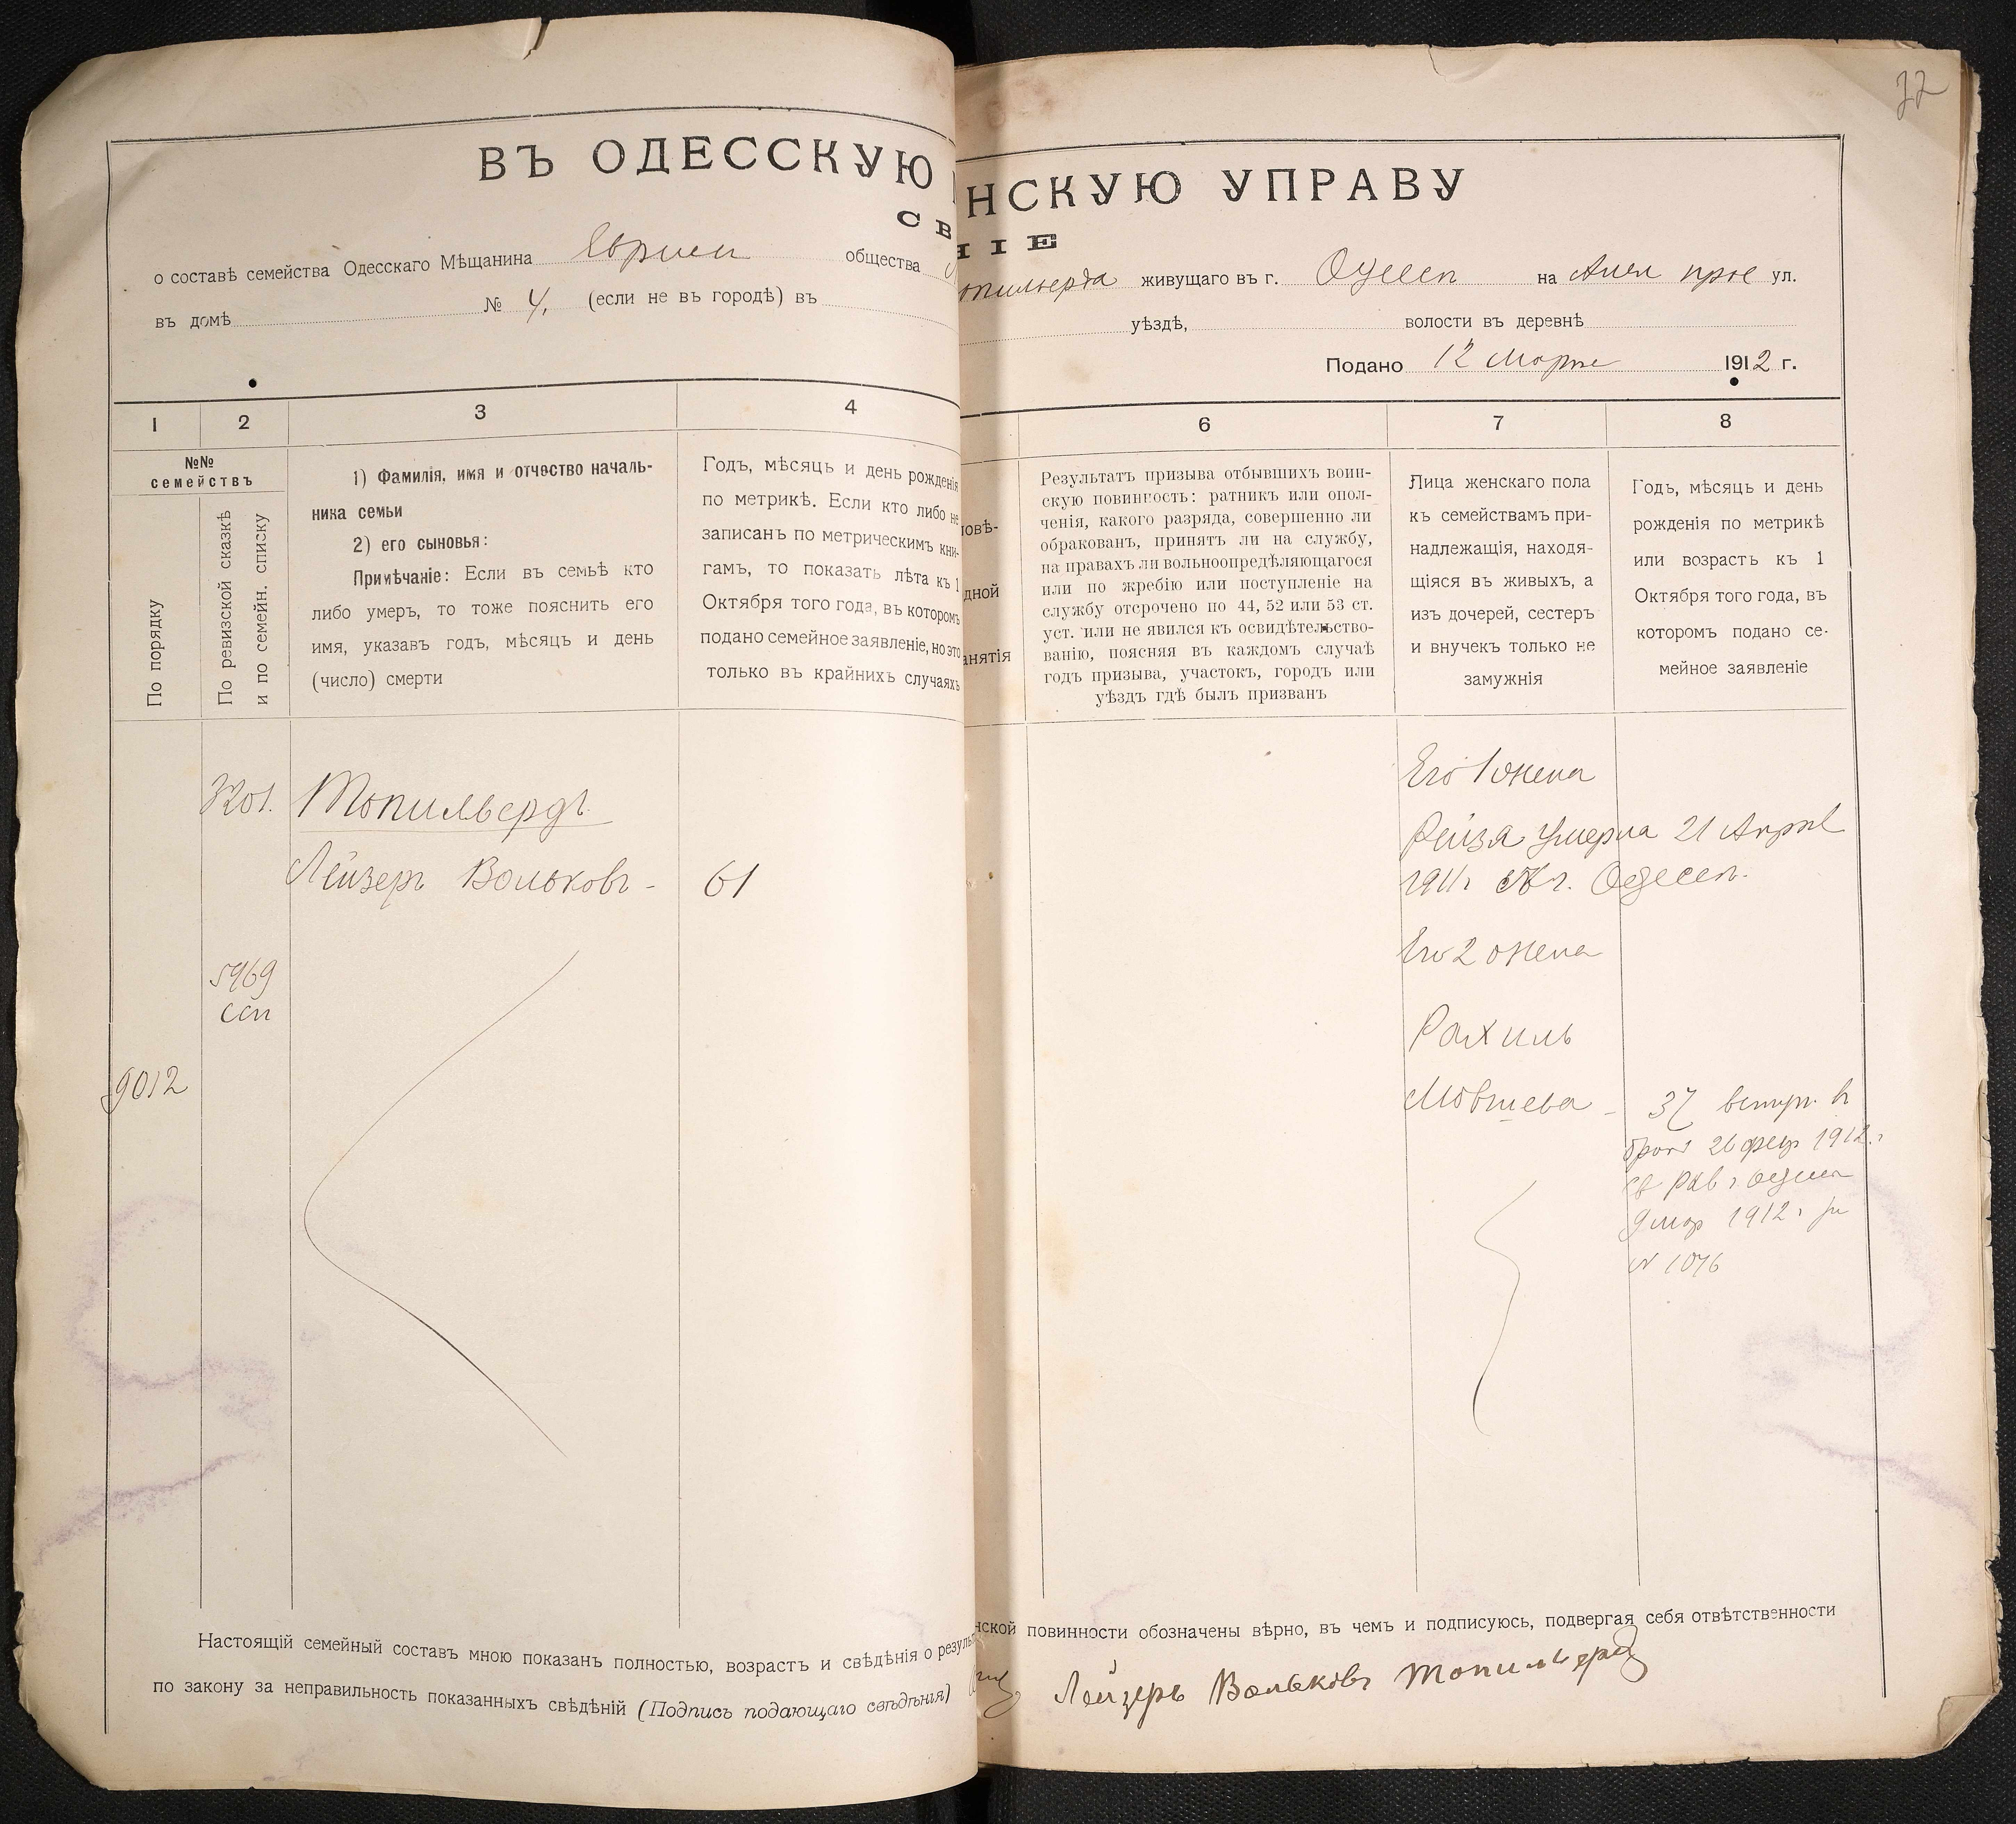 32
ВЪ ОДЕССКУЮ
НСКУЮ УПРАВУ
СВ
НІЕ
о составѣ семейства Одесскаго Мѣщанина Евреи общества
опильберда живущаго въ г. Одессѣ на ул.
въ домѣ № 4. (если не въ городѣ) въ
уѣздѣ, волости въ деревнѣ
Подано 12 Марта 1912 г.
1 2 3 4
6 7 8
№№ семействъ
По порядку
По ревизской сказкѣ
и по семейн. списку
1) Фамилія, имя и отчество началь-
ника семьи
2) его сыновья:
Примѣчаніе: Если въ семьѣ кто
либо умеръ, то тоже пояснить его
имя, указавъ годъ, мѣсяцъ и день
(число) смерти
Годъ, мѣсяцъ и день рожденія
по метрикѣ. Если кто либо не
записанъ по метрическимъ кни-
гамъ, то показать лѣта къ 1
Октября того года, въ которомъ
подано семейное заявленіе, но это
только въ крайнихъ случаяхъ
овѣ-
дной
анятія
Результатъ призыва отбывшихъ воин-
скую повинность: ратникъ или опол-
ченія, какого разряда, совершенно ли
обракованъ, принятъ ли на службу,
на правахъ ли вольноопредѣляющагося
или по жребію или поступленіе на
службу отсрочено по 44, 52 или 53 ст.
уст. или не явился къ освидѣтельство-
ванію, поясняя въ каждомъ случаѣ
годъ призыва, участокъ, городъ или
уѣздъ гдѣ былъ призванъ
Лица женскаго пола
къ семействамъ при-
надлежащія, находя-
щіяся въ живыхъ, а
изъ дочерей, сестеръ
и внучекъ только не
замужнія
Годъ, мѣсяцъ и день
рожденія по метрикѣ
или возрастъ къ 1
Октября того года, въ
которомъ подано се-
мейное заявленіе
3201. Топильбердъ
Лейзеръ Вольковъ - 61
5969
ссп
9012
Его 1 жена
Рейза умерла 21 Апрѣл
1911 г. Одессѣ.
Его 2 жена
Рахиль
Мовшева - 37 вступ. въ
бракъ 26 фев 1912 г
св Рав г Одессы
9 мар 1912 г
N 1076
Настоящій семейный составъ мною показанъ полностью, возрастъ и свѣдѣнія о резуль
нской повинности обозначены вѣрно, въ чемъ и подписуюсь, подвергая себя отвѣтственности
по закону за неправильность показанныхъ свѣдѣній (Подпись подающаго свѣдѣнія)
Лейзеръ Вольковъ Топильберд